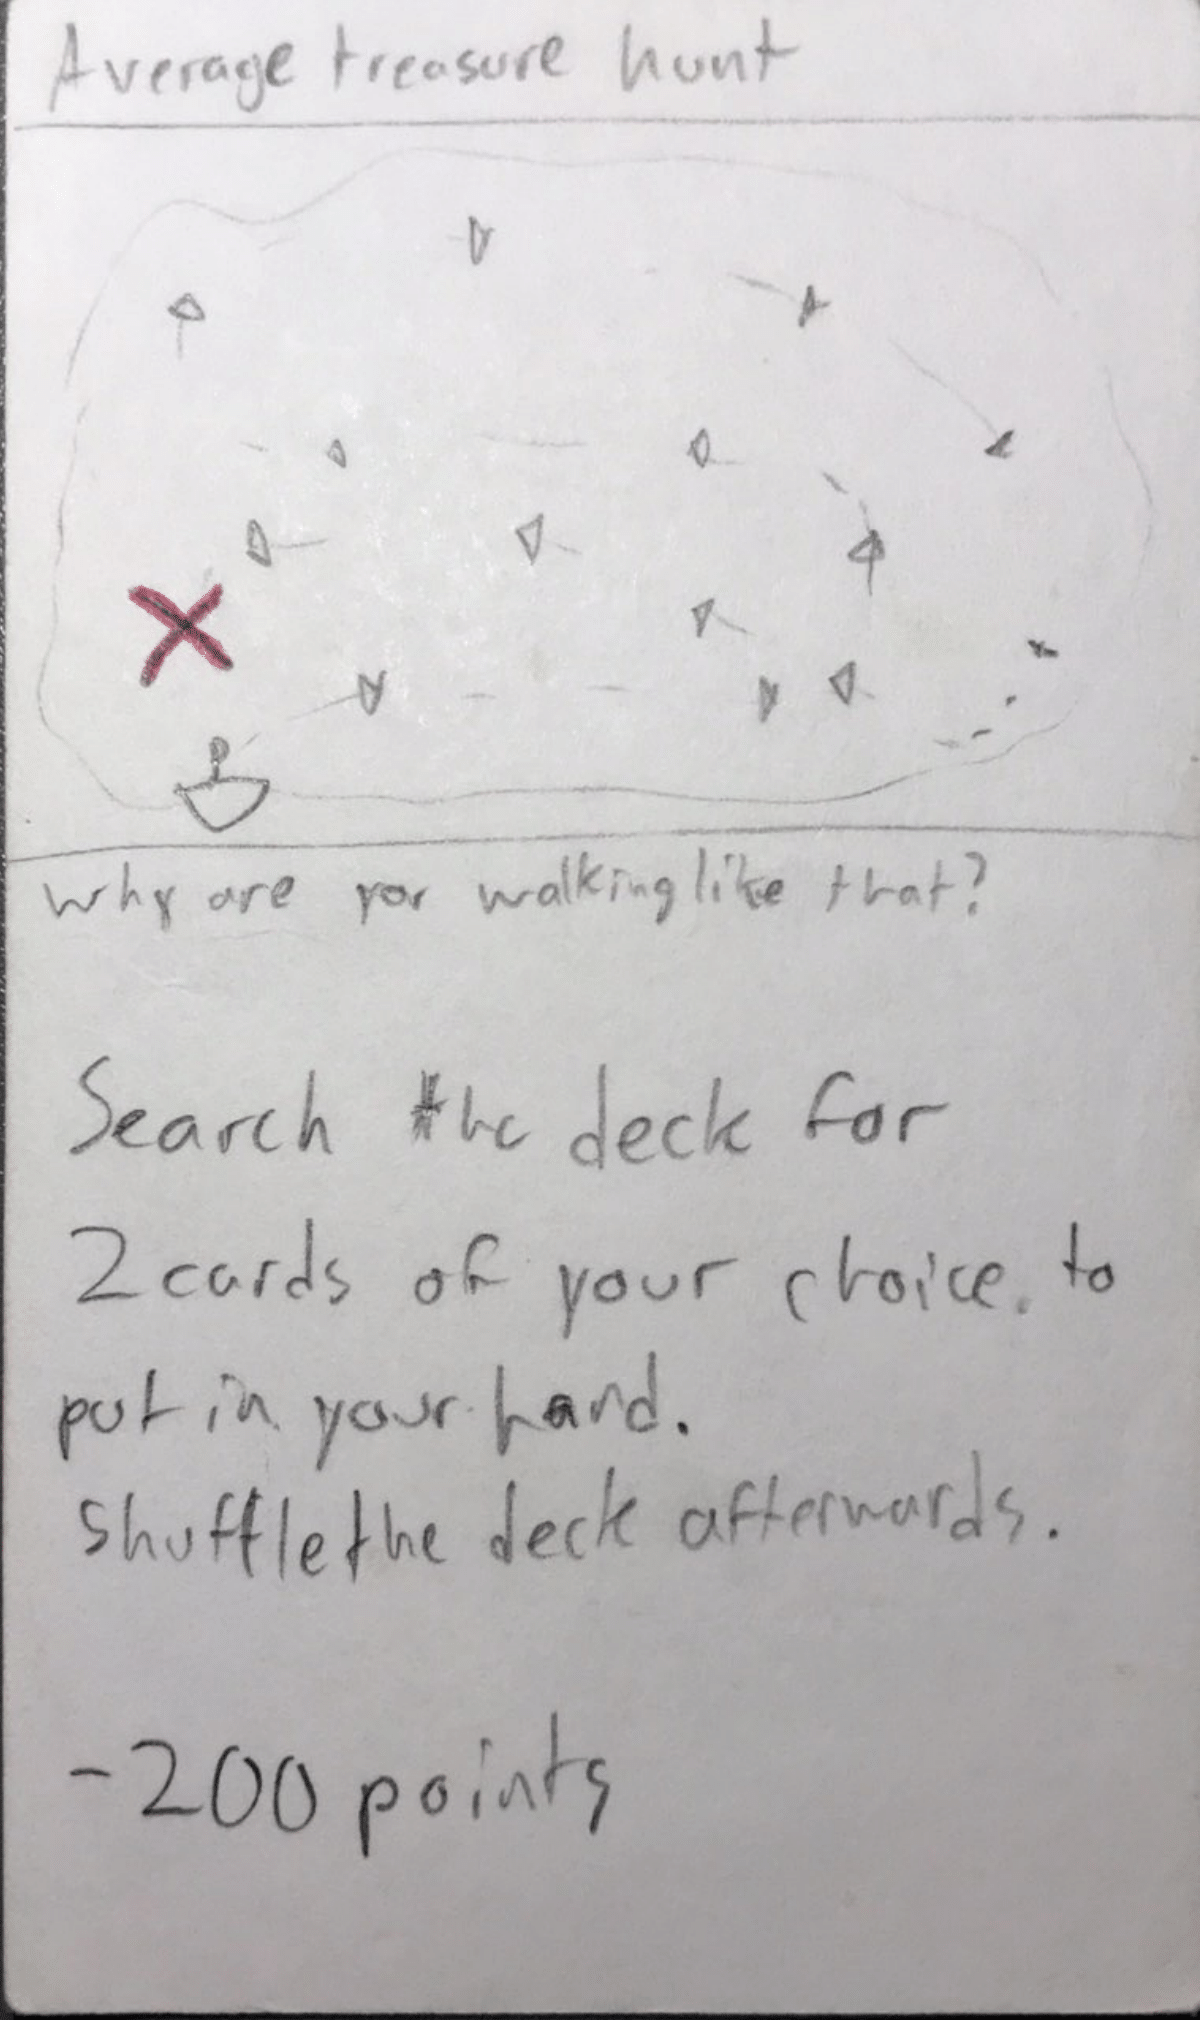 Average treasure hunt
Why are you walking like that?
Search the deck for
2 cards of your choice. to
put in your hand.
Shuffle the deck afterwards.
-200 points